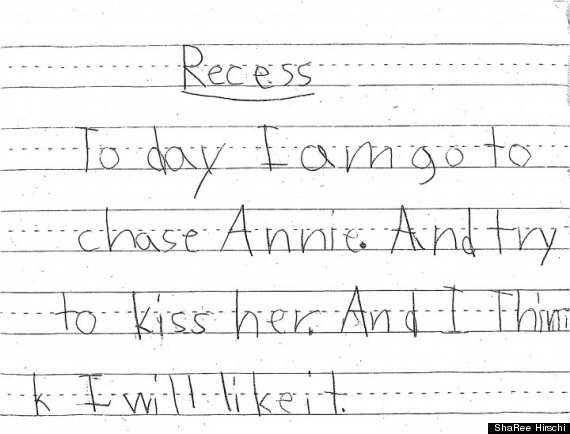 Recess
Today I am go to
chase Annie. And try
to kiss her. And I Thin
k I will like it.
ShaRee Hirschi